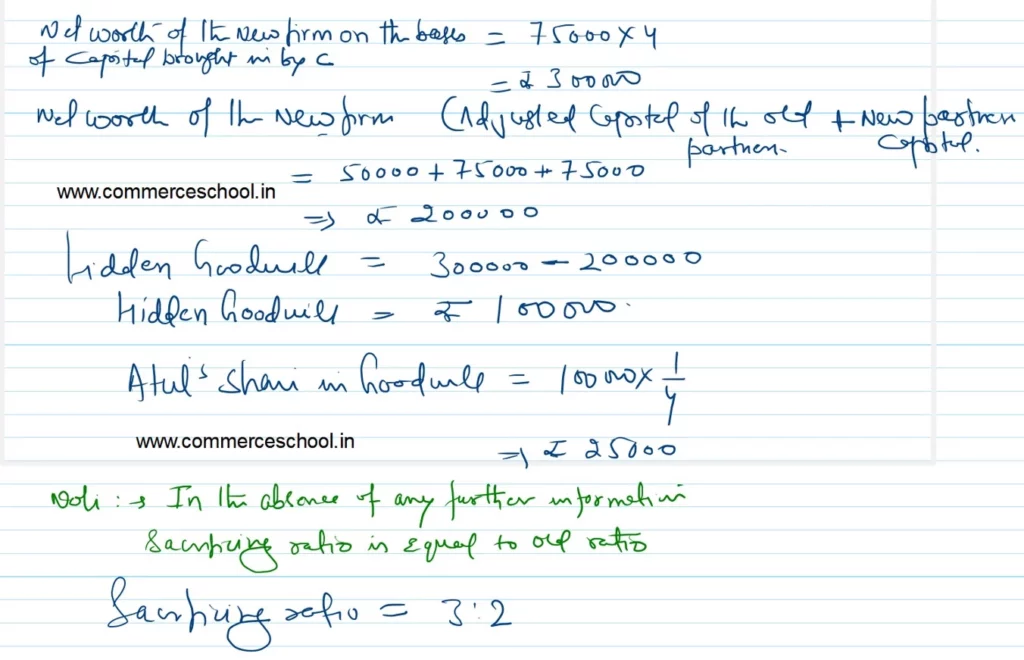 Net worth of the New firm on the bases = 75000 × 4
of Capital brought in by C
= ₹ 300000
Net worth of the New firm (Adjusted Capital of the old + New partners
partners. Capital.
= 50000 + 75000 + 75000
www.commerceschool.in
⇒ ₹ 200000
Hidden Goodwill = 300000 - 200000
Hidden Goodwill = ₹ 100000.
Atul's Share in Goodwill = 100000 × 1/4
www.commerceschool.in
⇒ ₹ 25000
Note :→ In the absence of any further information
Sacrificing ratio is equal to old ratio
Sacrificing ratio = 3:2